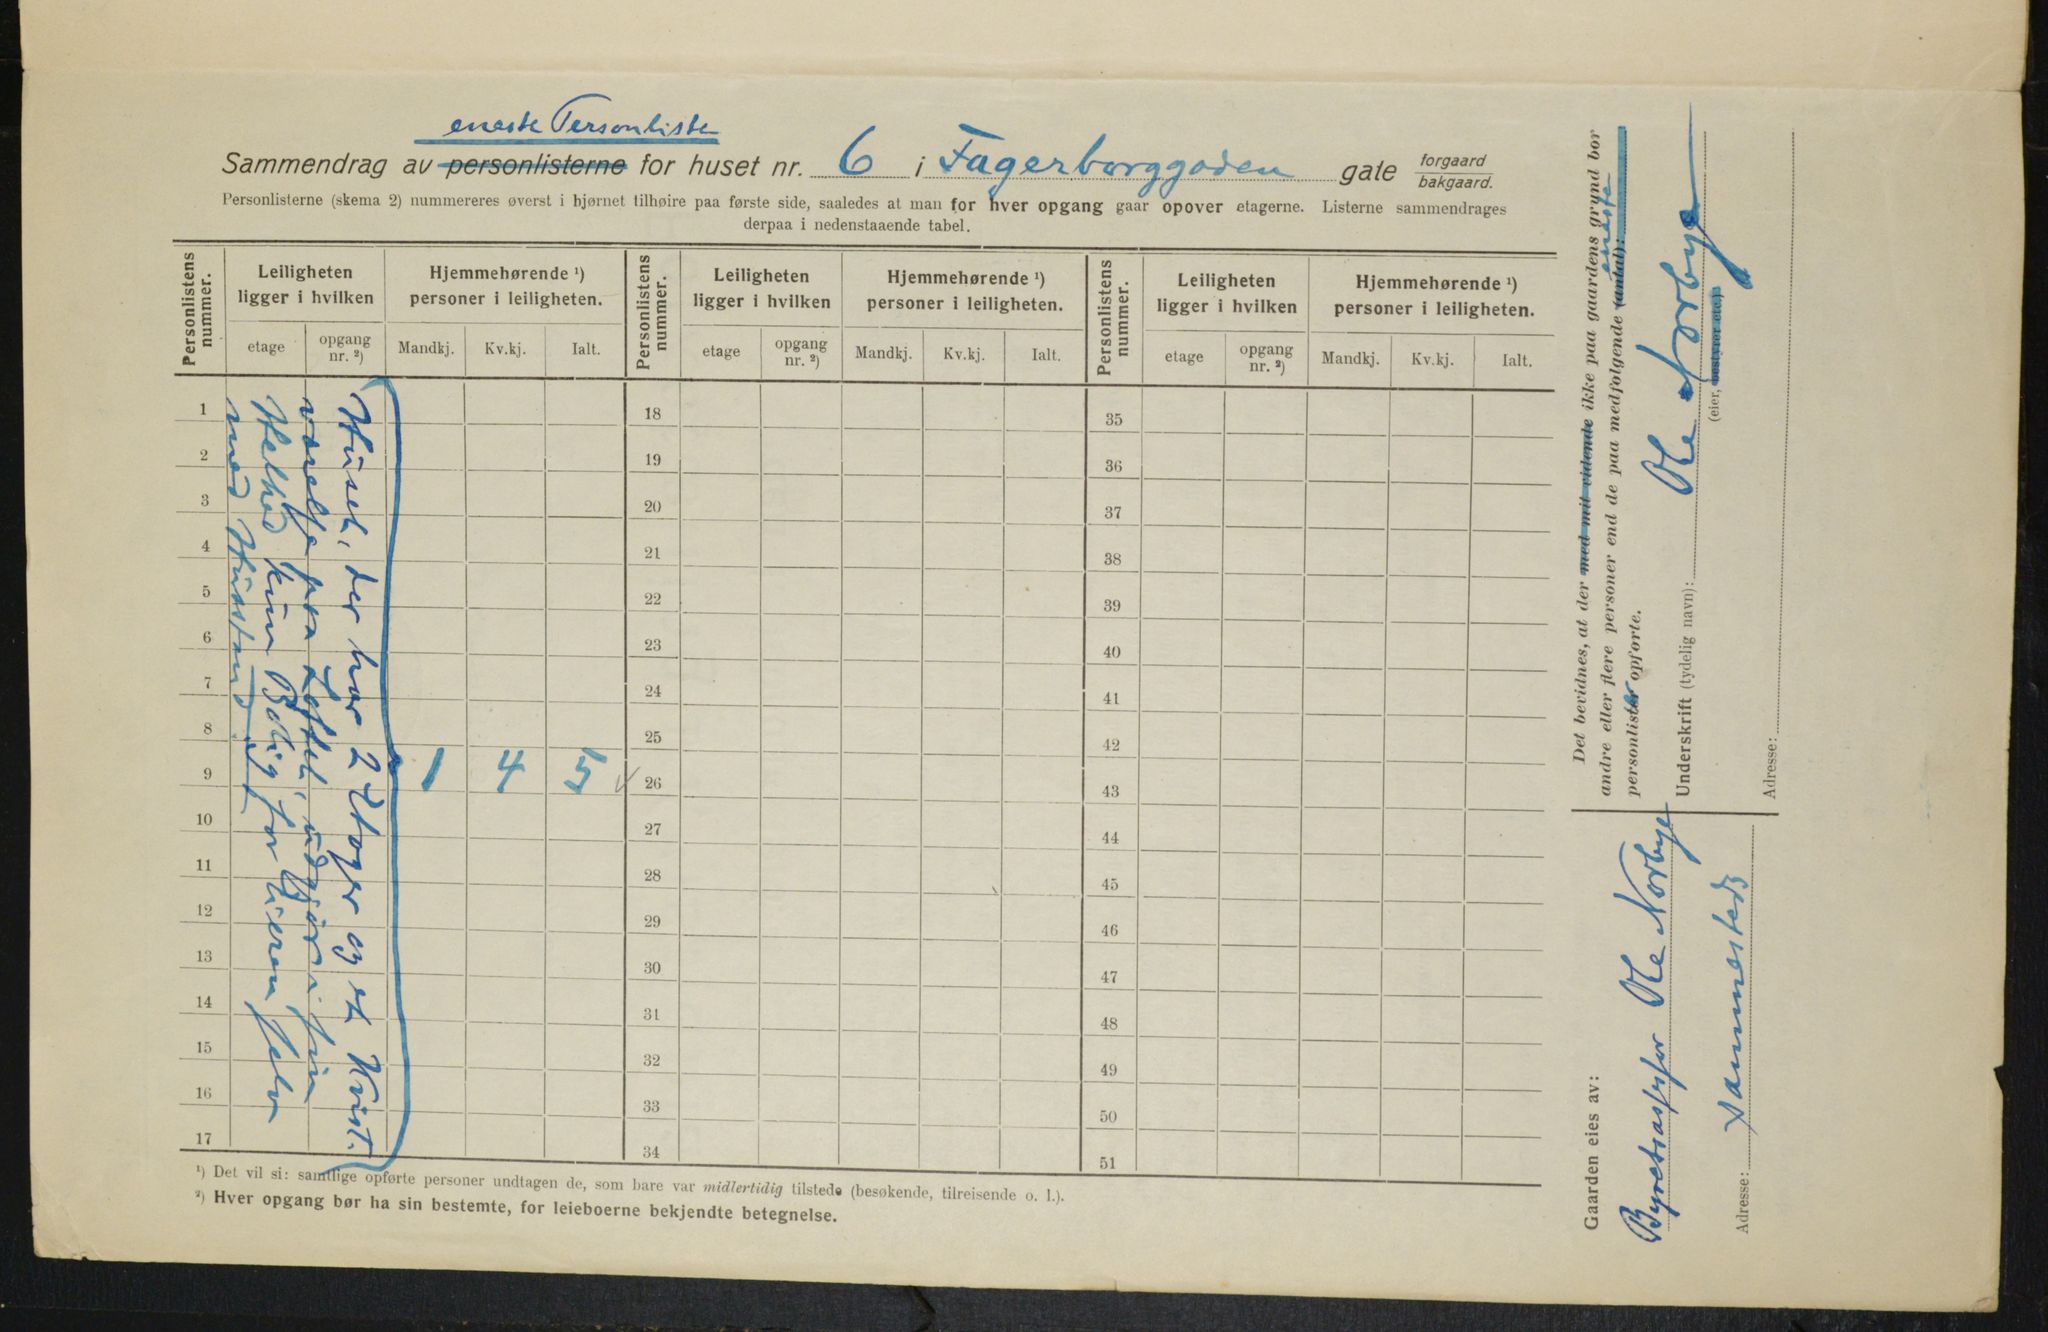 eneste Personliste
Sammendrag av personlisterne for huset nr. 6 i Fagerborggaden gate forgaard
bakgaard.
Personlisterne (skema 2) nummereres øverst i hjørnet tilhøire paa første side, saaledes at man for hver opgang gaar opover etagerne. Listerne sammendrages
derpaa i nedenstaaende tabel.
Personlistens nummer. Leiligheten ligger i hvilken Hjemmehørende ¹) personer i leiligheten. Personlistens nummer. Leiligheten ligger i hvilken Hjemmehørende ¹) personer i leiligheten. Personlistens nummer. Leiligheten ligger i hvilken Hjemmehørende ¹) personer i leiligheten.
etage opgang nr. ²) Mandkj. Kv.kj. Ialt. etage opgang nr. ²) Mandkj. Kv.kj. Ialt. etage opgang nr. ²) Mandkj. Kv.kj. Ialt.
1 18 35
2 19 36
3 20 37
4 21 38
5 22 39
6 23 40
7 24 41
8 25 42
9 1 4 5 26 43
10 27 44
11 28 45
12 29 46
13 30 47
14 31 48
15 32 49
16 33 50
17 34 51
Huset, der har 2 Etager og et Kvist
værelse paa Loftet, udgjør i sin
Helhed kun Bolig for Eieren selv
med Husstand
¹) Det vil si: samtlige opførte personer undtagen de, som bare var midlertidig tilstede (besøkende, tilreisende o. l.).
²) Hver opgang bør ha sin bestemte, for leieboerne bekjendte betegnelse.
Det bevidnes, at der med mit vidende ikke paa gaardens grund bor
andre eller flere personer end de paa medfølgende (antal): eneste
personlister opførte.
Underskrift (tydelig navn): Ole Norbye
(eier, bestyrer etc.)
Adresse:
Gaarden eies av:
Byretsassessor Ole Norbye
Adresse: sammesteds